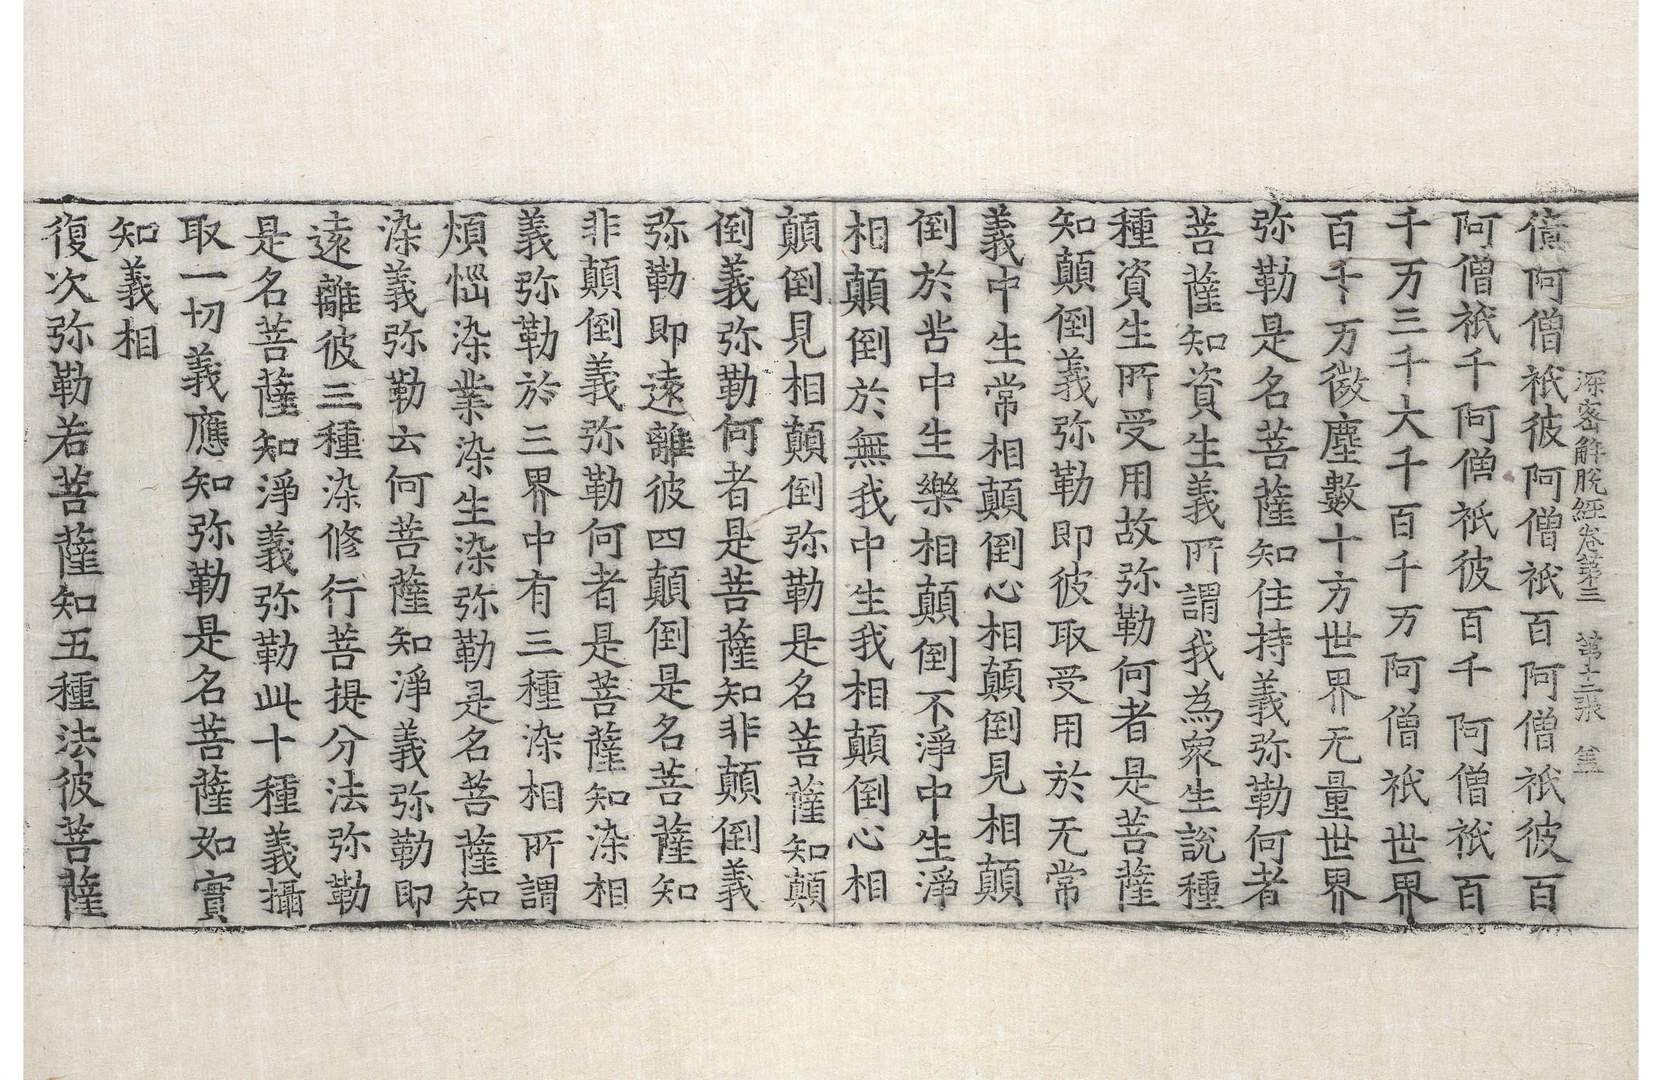 深密解脫經卷第三　第十二張
阿僧祇彼阿僧祇百阿僧祇彼百
阿僧祇千阿僧祇彼百千阿僧祇百
千万三千大千百千万阿僧祇世界
百千万微塵數十方世界无量世界
弥勒是名菩薩知住持義弥勒何者
菩薩知資生義所謂我為衆生說種
種資生所受用故弥勒何者是菩薩
知顛倒義弥勒即彼取受用於无常
義中生常相顛倒心相顛倒見相顛
倒於苦中生樂相顛倒不淨中生淨
相顛倒於無我中生我相顛倒心相
顛倒見相顛倒弥勒是名菩薩知顛
倒義弥勒何者是菩薩知非顛倒義
弥勒即遠離彼四顛倒是名菩薩知
非顛倒義弥勒何者是菩薩知染相
義弥勒於三界中有三種染相所謂
煩惱染業染生染弥勒是名菩薩知
染義弥勒云何菩薩知淨義弥勒即
遠離彼三種染修行菩提分法弥勒
是名菩薩知淨義弥勒此十種義攝
取一切義應知弥勒是名菩薩如實
知義相
復次弥勒若菩薩知五種法彼菩薩